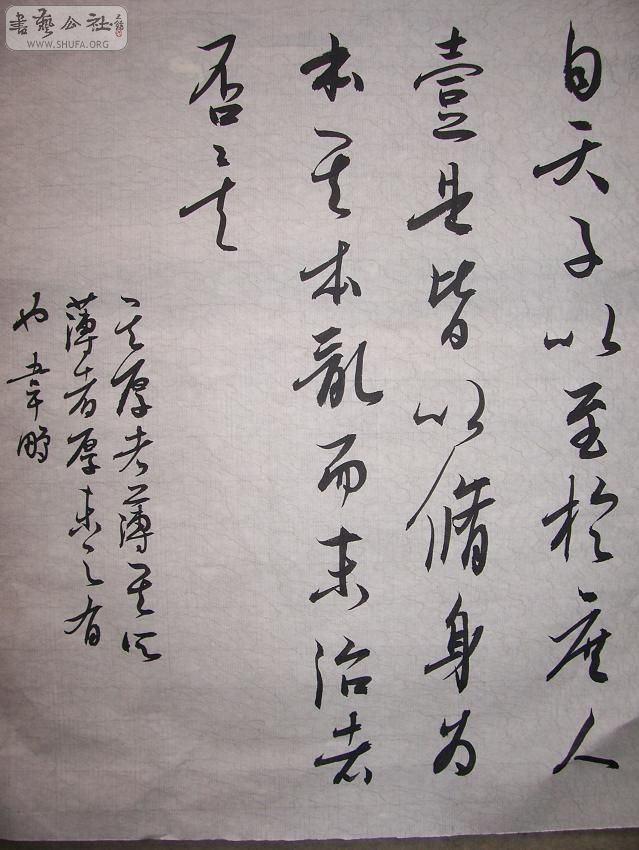 自天子以至於庶人
壹是皆以脩身為
本其本亂而末治者
否矣
其厚者薄其所
薄者厚未之有
也
書藝公社
WWW.SHUFA.ORG